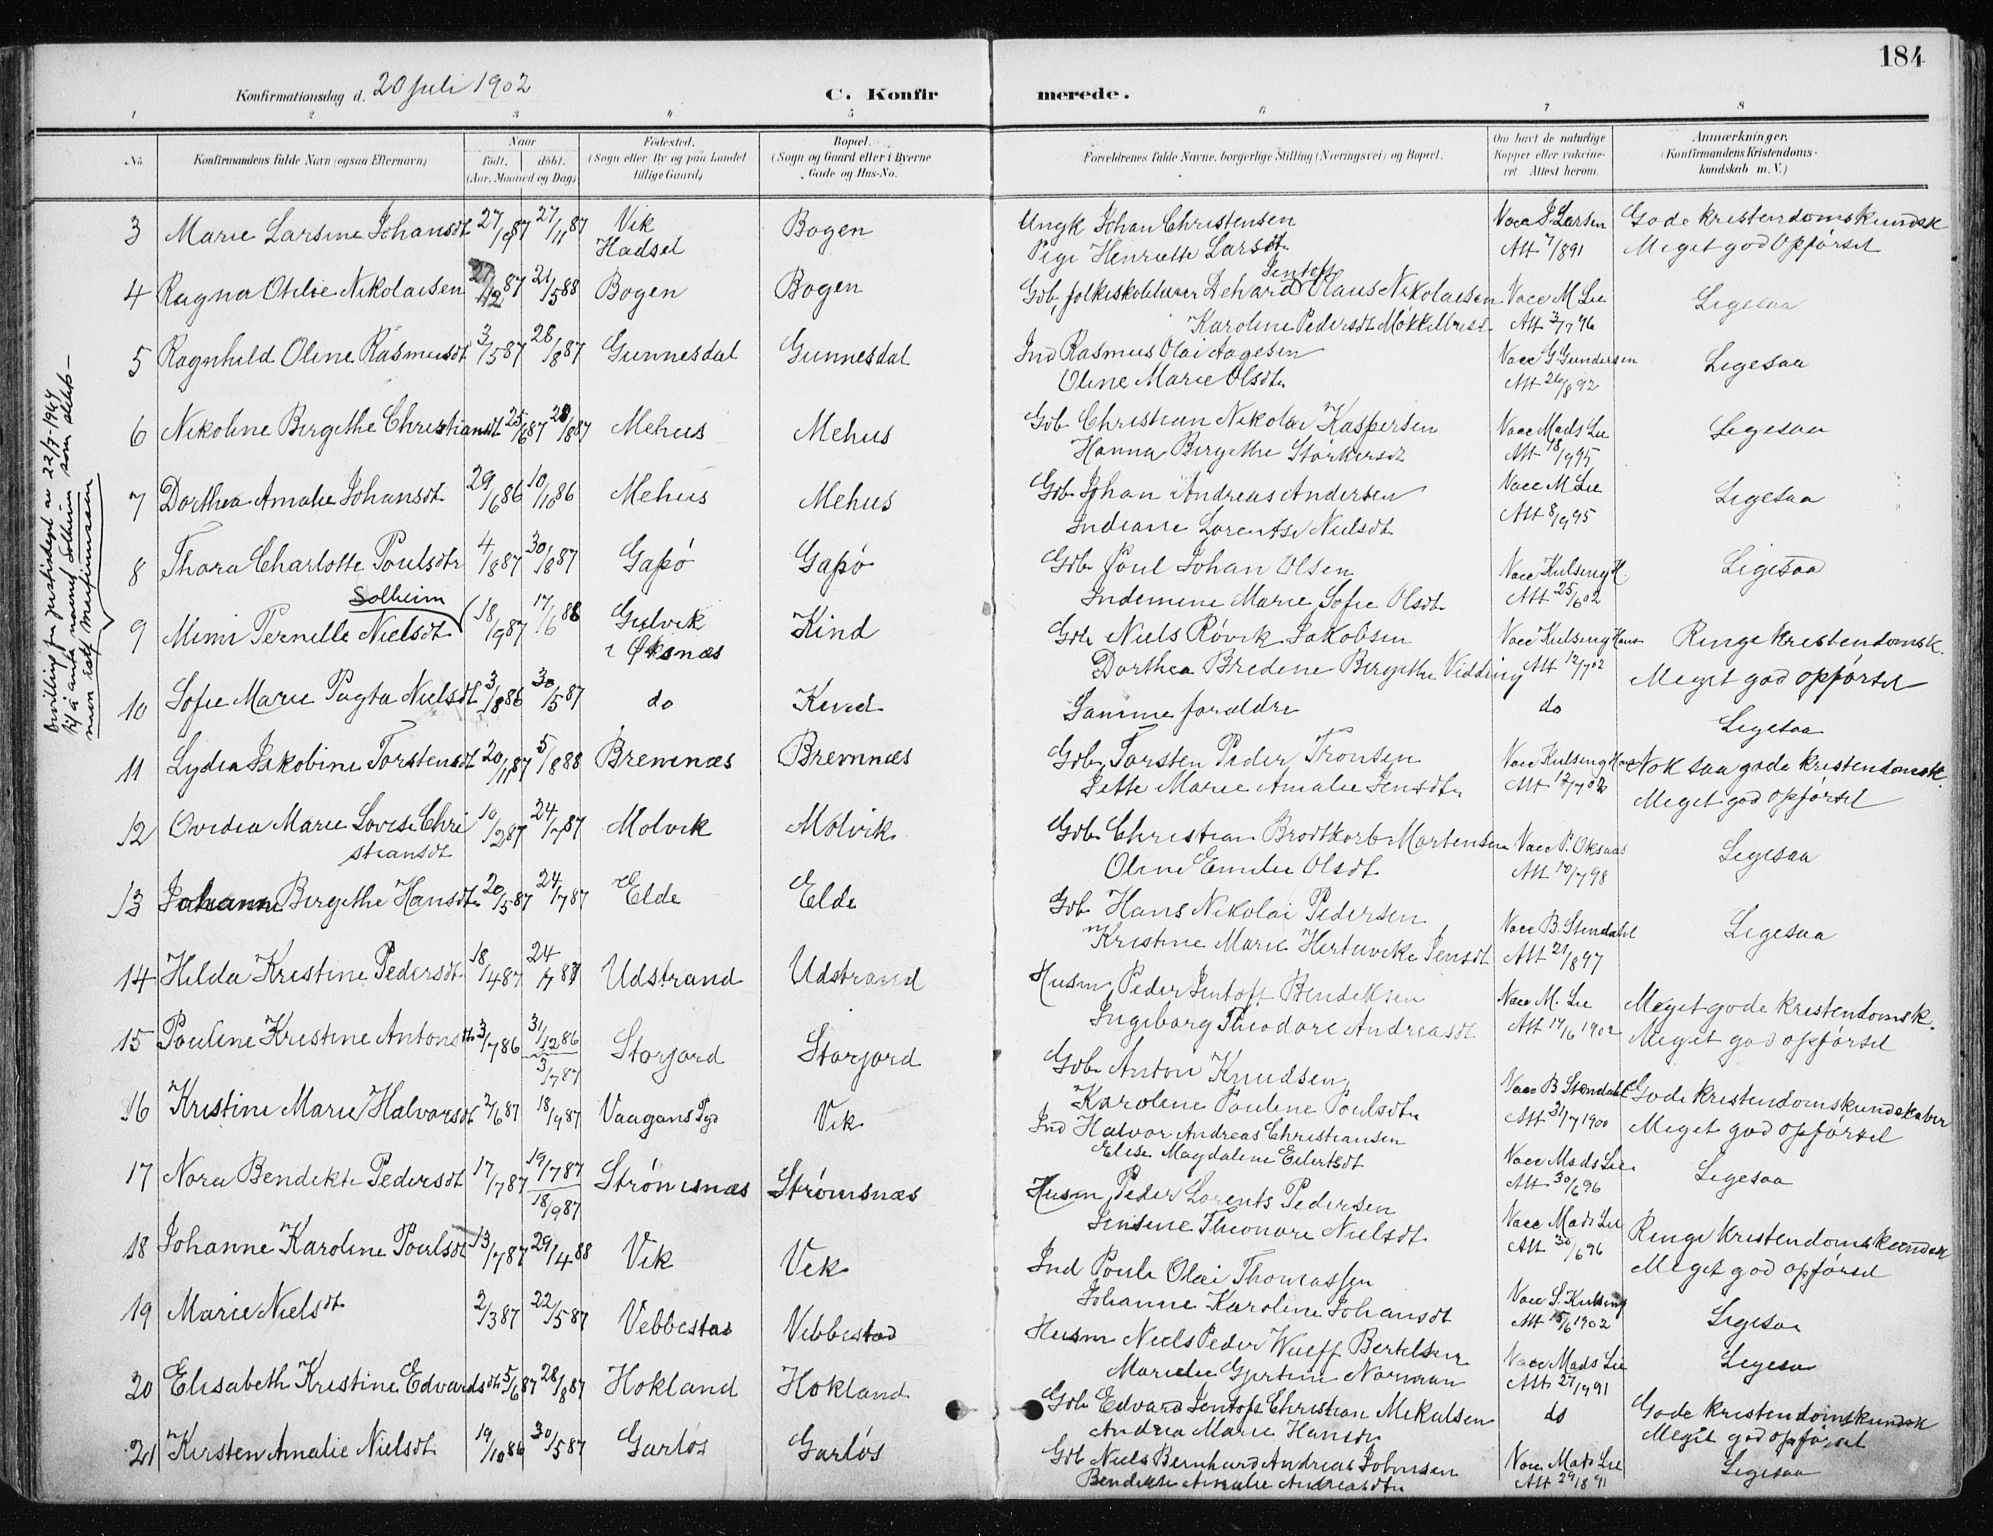 184
Konfirmationsdag d. 20 Juli 1902
C. Konfir merede.
1 2 3 4 5 6 7 8
No. Konfirmandens fulde Navn (ogsaa Efternavn) Naar født. døbt. (Aar, Maaned og Dag) Fødested. (Sogn eller By og paa Landet tillige Gaard) Bopæl. (Sogn og Gaard eller i Byerne Gade og Hus-No. Forældrenes fulde Navne, borgerlige Stilling (Næringsvei) og Bopæl. Om havt de naturlige Kopper eller vakcineret. Attest herom. Anmærkninger. (Konfirmandens Kristendomskundskab m. V.)
3 Marie Larsine Johansdt 27/9 87 27/11 87 Vik Hadsel Bogen Ungk Johan Christensen Vacc J. Larsen Gode kristendomskundsk
Pige Henriette Larsdt. Att 7/8 91 Meget god Opførsel
4 Ragna Otilie Nikolaisen 27/12 87 21/5 88 Bogen Bogen Gdb, folkeskolelærer Edvard Jentoft Olaus Nikolaisen Vacc M Lie Ligesaa
Karoline Pedersdt Møkkelbust Att 3/7 96
5 Ragnhild Oline Rasmusdt 3/5 87 28/8 87 Gunnesdal Gunnesdal Ind Rasmus Olai Aagesen Vacc G. Gundersen Ligesaa
Oline Marie Olsdt. Att 26/8 92
6 Nikoline Birgithe Christiansdt 25/6 87 28/8 87 Mehus Mehus Gdb Christian Nikolai Kaspersen Vacc Mads Lie Ligesaa
Hanna Birgithe Størkersdt Att 18/9 95
7 Dorthea Amalie Johansdt 29/6 86 10/10 86 Mehus Mehus Gdb Johan Andreas Andersen Vacc M Lie Ligesaa
Indiane Lorentse Nielsdt Att 8/9 95
8 Thora Charlotte Poulsdtr 4/8 87 30/8 87 Gapø Gapø Gdb Poul Johan Olsen Vacc Kulseng H. Ligesaa
Indemine Marie Sofie Olsdt. Att 25/6 02
Solheim
9 Mimi Pernille Nielsdt 18/9 87 17/6 88 Gisløvik i Øksnæs Kind Gdb Niels Røvik Jakobsen Vacc Kulseng Hans Ringe kristendomsk.
Dorthea Bredine Birgithe Vidding Att 12/7 02 Meget god opførsel
10 Sofie Marie Nielsdt 3/8 86 30/5 87 do Kind Samme forældre do Ligesaa
11 Lydia Jakobine Torstensdt 20/11 87 5/8 88 Bremnæs Bremnæs Gdb. Torsten Peder Tronsen Vacc Kulseng Nok saa gode kristendomsk.
Jette Marie Amalie Jensdt. Att 12/7 02 Meget god opførsel
12 Ovidia Marie Lovise Chri 10/2 87 24/7 87 Molvik Molvik Gdb Christian Brodtkorb Mortensen Vacc P. Oksaas Ligesaa
stiansdt Oline Emilie Olsdt. Att 10/7 98
13 Johanne Birgithe Hansdt. 20/5 87 24/7 87 Elde Elde Gdb Hans Nikolai Pedersen Vacc B. Stendahl Ligesaa
Kristine Marie Hertuvike Jensdt Att 21/8 97
14 Hilda Kristine Pedersdt. 18/4 87 24/7 87 Udstrand Udstrand Husm. Peder Jentoft Bendiksen Vacc M. Lie Meget gode kristendomsk.
Ingeborg Theodore Andreasdt Att 14/6 1902 Meget god opførsel
15 Pouline Kristine Antonsdt. 3/7 86 31/12 86 3/7 87 Storjord Storjord Gdb Anton Knudsen Vacc B Stendahl Gode kristendomskundskaber
Karoline Pouline Poulsdt. Att 31/7 1900 Meget god opførsel
16 Kristine Marie Halvorsdt 2/6 87 18/9 87 Vaagans Pgd Vik Ind Halvor Andreas Christiansen Vacc Mads Lie Ligesaa
Elise Magdalene Eilertsdt Att 30/6 96
17 Nora Bendikte Pedersdt 17/7 87 19/7 87 18/9 87 Strømsnæs Strømsnæs Husm Peder Lorents Pedersen Vacc Mads Lie Ringe kristendomskundsk
Jensine Theonore Nielsdt. Att 30/6 96 Meget god opførsel
18 Johanne Karoline Poulsdt 13/7 87 29/4 88 Vik Vik Ind Poul Olai Thomassen Vacc S. Kulseng Ligesaa
Johanne Karoline Johansdt Att 15/6 1902
19 Marie Nielsdt 2/3 87 22/5 87 Vebbestad Vebbestad Husm Niels Peder Wulff Bertelsen Vacc Mads Lie Ligesaa
Norman Att 27/9 91
20 Elisabeth Kristine Edvardsdt. 5/6 87 28/8 87 Hokland Hokland Gdb Edvard Jentoft Christian Mikalsen do Gode kristendomskundsk
Andrea Marie Hansdt. Meget god opførsel
21 Kirsten Amalie Nielsdt 19/10 86 30/5 87 Garløs Garløs Gdb Niels Bernhard Andreas Johnsen Vacc Mads Lie Ligesaa
Bendikte Amalie Andreasdt. Att 29/8 91
Bevilling fra justisdept av 22/7-1947
til å anta navnet Solheim som slekts-
navn istf. Martinussen